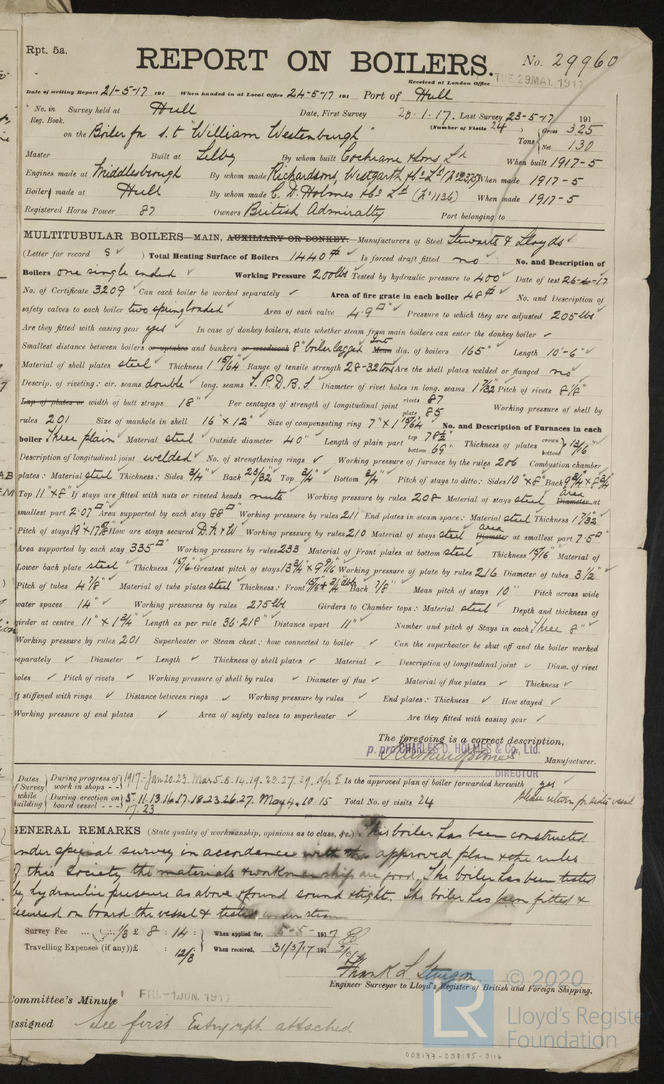 Rpt. 5a.
REPORT ON BOILERS.
No. 29960
Received at London Office
TUE. 29 MAY. 1917
Date of writing Report 21-5-17 191 When handed in at Local Office 24-5-17 191 Port of Hull
No. in Survey held at Hull Date, First Survey 20.1.17. Last Survey 23-5-17 191
Reg. Book. (Number of Visits 24)
on the Boiler for s.t "William Westenburgh" Tons Gross 325 Net 130
Master Built at Selby By whom built Cochrane & Sons Ld When built 1917-5
Engines made at Middlesbrough By whom made Richardsons, Westgarth & Co Ld When made 1917-5
Boilers made at Hull By whom made C. D. Holmes & Co Ld (No 1136) When made 1917-5
Registered Horse Power 87 Owners British Admiralty Port belonging to
MULTITUBULAR BOILERS—MAIN, AUXILIARY OR DONKEY.—Manufacturers of Steel Stewarts & Lloyds
(Letter for record S) Total Heating Surface of Boilers 1440 Is forced draft fitted no No. and Description of
Boilers one single ended Working Pressure 200 lbs Tested by hydraulic pressure to 400 Date of test 26-4-17
No. of Certificate 3209 Can each boiler be worked separately Area of fire grate in each boiler 48 No. and Description of
safety valves to each boiler two spring loaded Area of each valve 4.9 Pressure to which they are adjusted 205 lbs
Are they fitted with easing gear yes In case of donkey boilers, state whether steam from main boilers can enter the donkey boiler
Smallest distance between boilers or uptakes and bunkers or woodwork 8" boiler lagged Mean dia. of boilers 165" Length 10'-6"
Material of shell plates steel Thickness 1 15/64 Range of tensile strength 28-32 tons Are the shell plates welded or flanged no
Descrip. of riveting: cir. seams double long. seams T.R.D.B.S Diameter of rivet holes in long. seams 1 7/32 Pitch of rivets 8 1/2"
Lap of plates or width of butt straps 18" Per centages of strength of longitudinal joint rivets 87 plate 85 Working pressure of shell by
rules 201 Size of manhole in shell 16" x 12" Size of compensating ring 7" x 1 15/64 No. and Description of Furnaces in each
boiler three plain Material steel Outside diameter 40" Length of plain part top 78 1/2" bottom 69" Thickness of plates crown bottom 13/16"
Description of longitudinal joint welded No. of strengthening rings Working pressure of furnace by the rules 206 Combustion chamber
plates: Material steel Thickness: Sides 3/4" Back 23/32 Top 3/4" Bottom 3/4" Pitch of stays to ditto: Sides 10" x 8" Back
Top 11" x 8" If stays are fitted with nuts or riveted heads nuts Working pressure by rules 208 Material of stays steel area Diameter at
smallest part 2.07 Area supported by each stay 88 Working pressure by rules 211 End plates in steam space: Material steel Thickness 1 7/32"
Pitch of stays How are stays secured D.N. & W Working pressure by rules 210 Material of stays steel area Diameter at smallest part 7.5
Area supported by each stay 335 Working pressure by rules 233 Material of Front plates at bottom steel Thickness 15/16" Material of
Lower back plate steel Thickness 15/16 Greatest pitch of stays Working pressure of plate by rules 216 Diameter of tubes 3 1/2"
Pitch of tubes 4 7/8" Material of tube plates steel Thickness: Front Back 7/8" Mean pitch of stays 10" Pitch across wide
water spaces 14" Working pressures by rules 275 lbs Girders to Chamber tops: Material steel Depth and thickness of
girder at centre 11" x 1 3/4" Length as per rule 36.218" Distance apart 11" Number and pitch of Stays in each three 8"
Working pressure by rules 201 Superheater or Steam chest; how connected to boiler Can the superheater be shut off and the boiler worked
separately Diameter Length Thickness of shell plates Material Description of longitudinal joint Diam. of rivet
holes Pitch of rivets Working pressure of shell by rules Diameter of flue Material of flue plates Thickness
If stiffened with rings Distance between rings Working pressure by rules End plates: Thickness How stayed
Working pressure of end plates Area of safety valves to superheater Are they fitted with easing gear
The foregoing is a correct description,
p. pro CHARLES D. HOLMES & Co., Ltd. Manufacturer.
DIRECTOR
Dates of Survey while building
During progress of work in shops - - 1917:- Jan 20.23. Mar 5.8.14.19.22.27.29. Apr 2 Is the approved plan of boiler forwarded herewith yes
During erection on board vessel - - - 5.11.13.16.17.18.23.26.27. May 4.10.15 Total No. of visits 24 please return for sister vessel
17.23
GENERAL REMARKS (State quality of workmanship, opinions as to class, &c.) This boiler has been constructed
under special survey in accordance with the approved plan & the rules
of this Society the materials & workmanship are good. The boiler has been tested
by hydraulic pressure as above & found sound & tight. The boiler has been fitted &
secured on board the vessel & tested under steam
Survey Fee 1/3 £ 8 : 14 : When applied for, 5-5-1917
Travelling Expenses (if any) £ : 12/8 When received, 31/5/17 191
Frank L Sturgeon
Engineer Surveyor to Lloyd's Register of British and Foreign Shipping.
Committee's Minute FRI. 1 JUN. 1917
Assigned See first Entry rpt. attached
© 2020
LR
Lloyd's Register
Foundation
008177-008185-0116